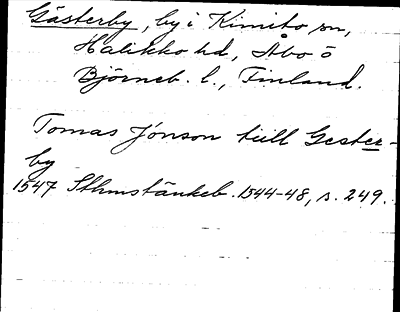 Gästerby, by i Kimito sn,
Halikko hd, Åbo o
Björneb. l., Finland.
Tomas Jonson till Gester-
by
1547 Sthmstänkeb. 1544-48, s. 249.